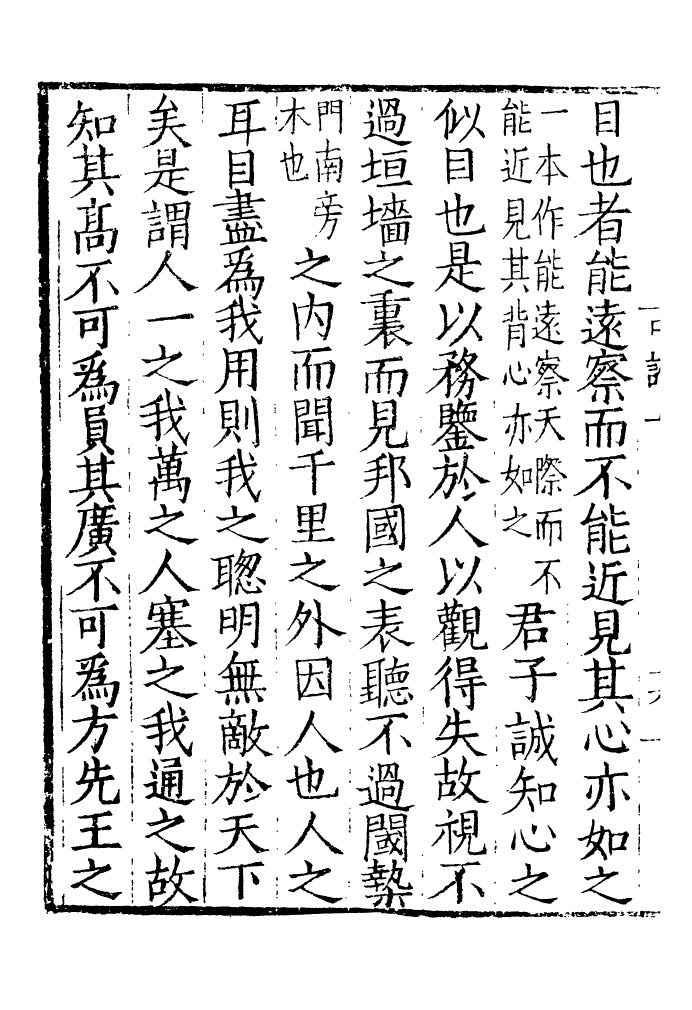 目也者能遠察而不能近見其心亦如之
一本作能遠察天際而不
能近見其背心亦如之
君子誠知心之
似目也是以務鑒於人以觀得失故視不
過垣墻之裏而見邦國之表聽不過閾槷
門南旁
木也
之内而聞千里之外因人也人之
耳目盡爲我用則我之聰明無敵於天下
矣是謂人一之我萬之人塞之我通之故
知其高不可爲員其廣不可爲方先王之